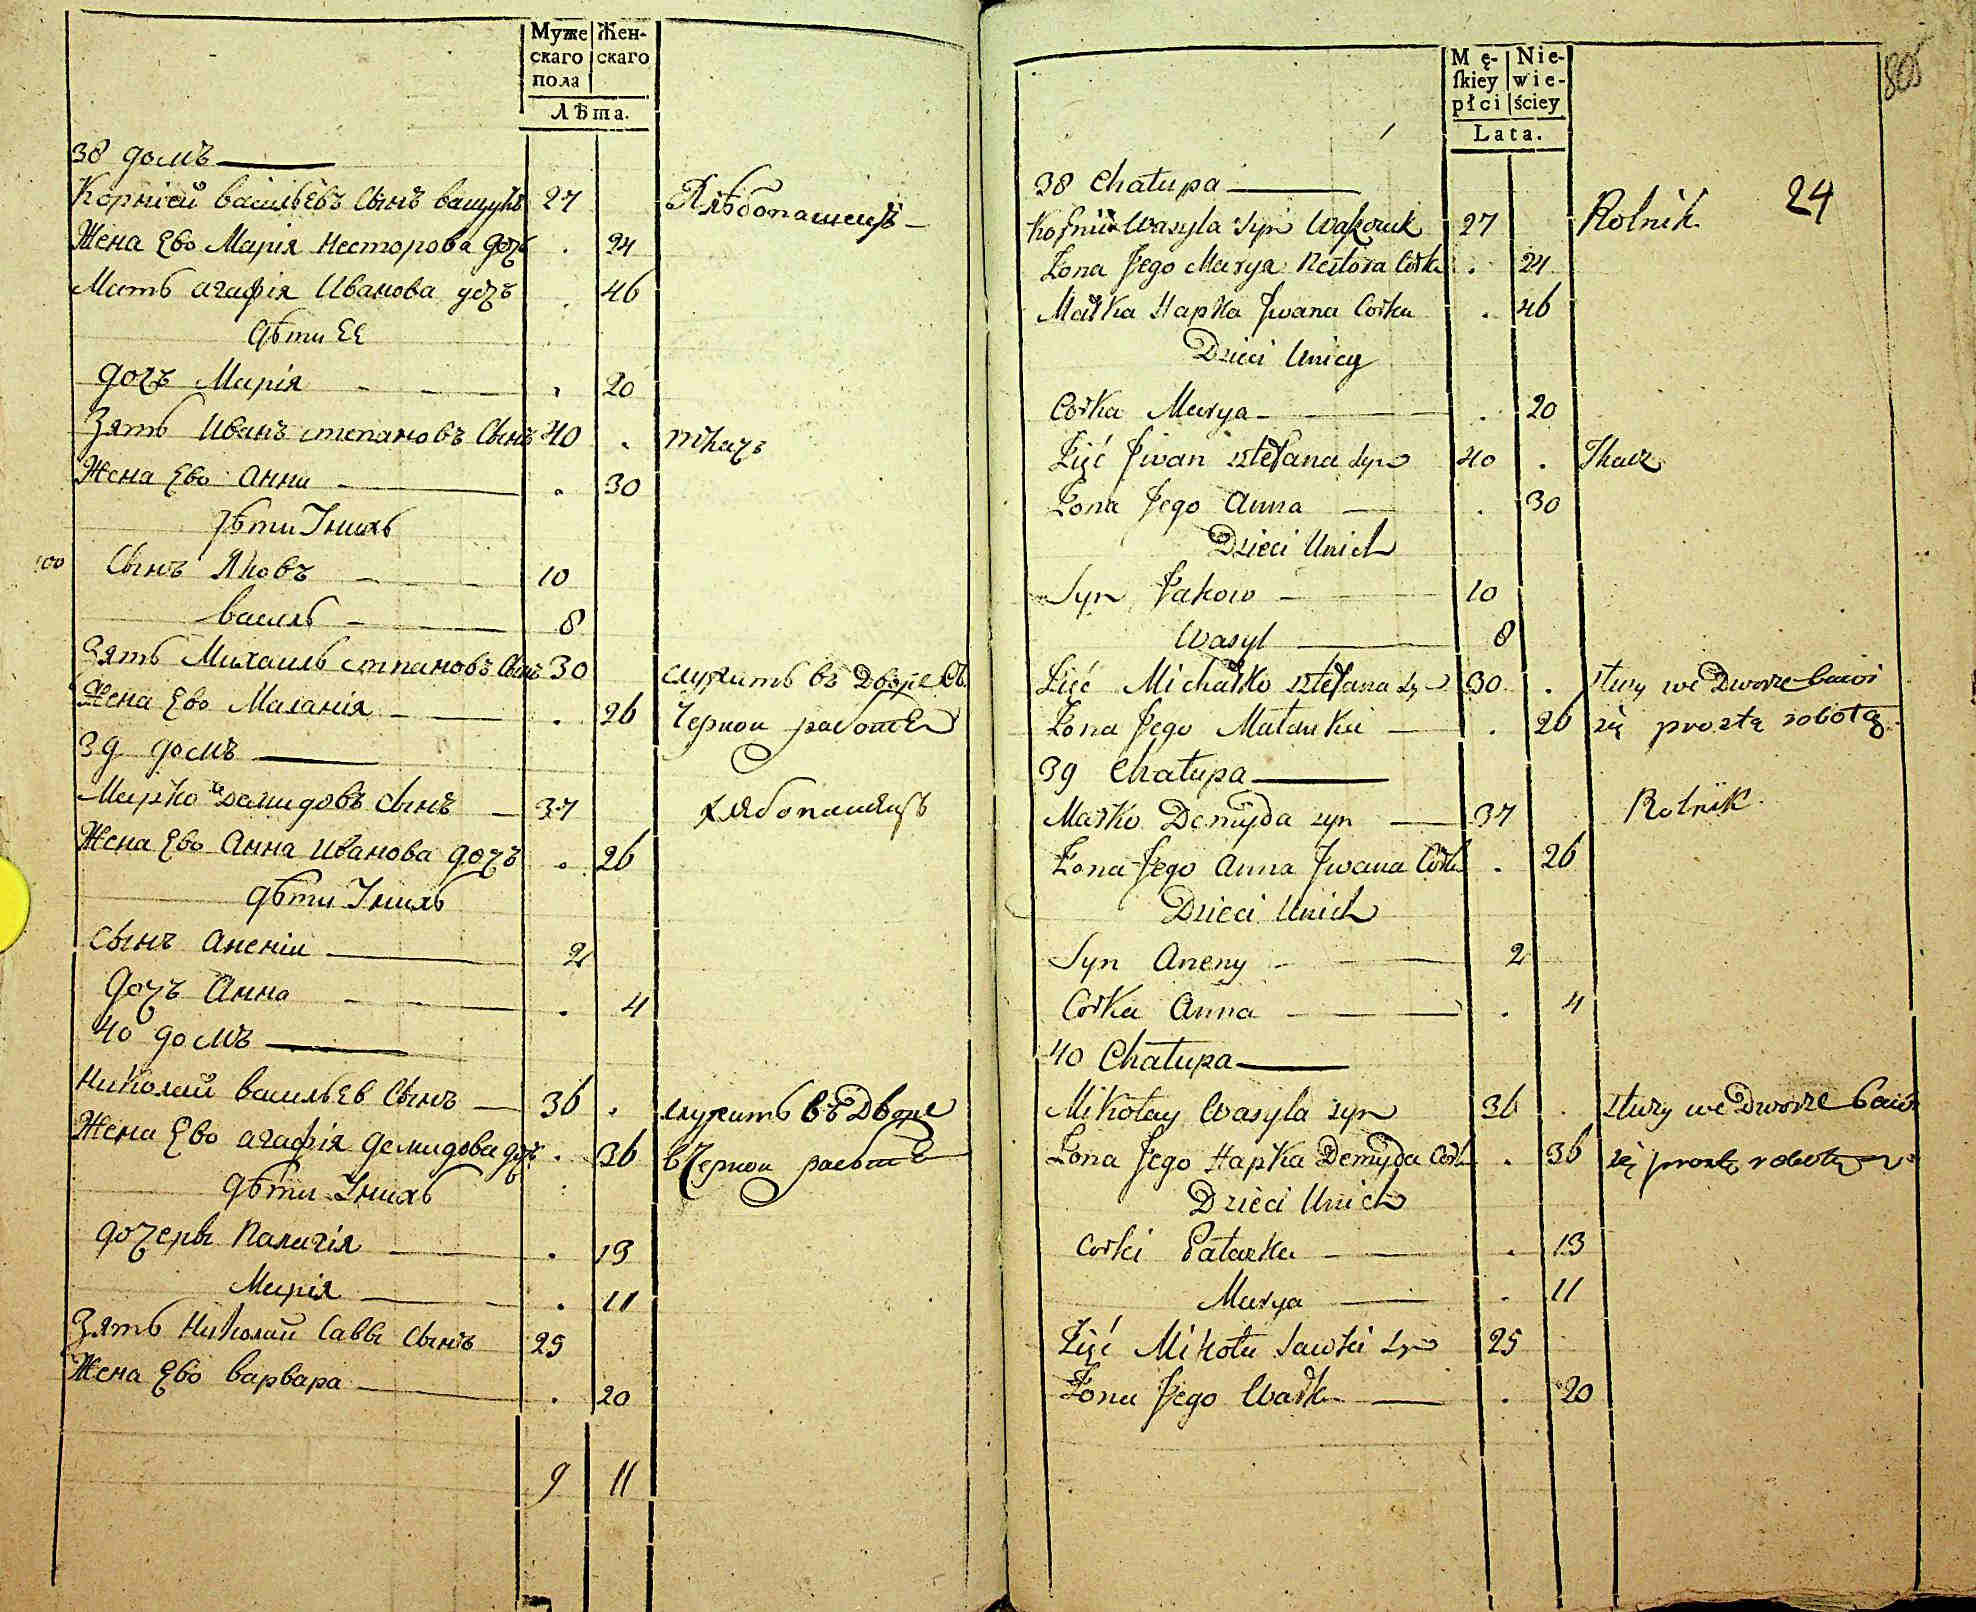 Муже Жен-
скаго скаго
пола
Лѣта.
38 домъ
Корнієй васильѣвъ Сынъ ващукъ 27 Хлѣбопашецъ
Жена Ево Марія Несторова дочь . 24
Мать агафія Иванова дочъ . 46
дѣти ЕЕ
дочъ Марія . 20
Зять Иванъ степановъ Сынъ 40 . ткачъ
Жена Ево Анна . 30
дѣти Унихъ
100 Сынъ Яковъ 10
василь 8
Зять Михаиль степановъ Сынъ 30 служитъ въ Дворе въ
Жена Ево Маланія . 26 Черной работе
39 домъ
Марко Демидовъ Сынъ 37 хлѣбопашецъ
Жена Ево Анна Иванова дочъ . 26
дѣти Унихъ
Сынъ Ананіи 2
дочъ Анна . 4
40 домъ
Николай васильЕв Сынъ 36 . служитъ въ Дворе
Жена Ево агафія демидова дочъ . 36 в Черной работе
дѣти Унихъ
дочеры Палагія . 13
Марія . 11
Зять Николай Саввы Сынъ 25
Жена Ево варвара . 20
9 11
805
Mę- Nie-
ſkiey wie-
płci ściey
Lata.
24
38 Chałupa
Korniй Wasyla Syn Waszczuk 27 Rolnik
Żona Jego Marya Nestora Corka . 24
Matka Hapka Jwana Corka . 46
Dzieci Unicy
Corka Marya . 20
Zięć Jwan stefana Syn 40 . Tkacz
Żona Jego Anna . 30
Dzieci Unich
Syn Jakow 10
Wasyl 8
Zięć Michałko stefana Syn 30 . służy we Dworze bawi
Żona Jego Małanka . 26 się prostą robotą
39 Chałupa
Marko Demyda syn 37 Rolnik
Żona Jego Anna Jwana Corka . 26
Dzieci Unich
Syn Aneny 2
Corka Anna . 4
40 Chałupa
Mikołay Wasyla syn 36 . służy we Dworze bawi
Żona Jego Hapka Demyda Corka . 36 się prostą robotą
Dzieci Unich
Corki Pałazka . 13
Marya . 11
Zięć Mikoła Sawki Syn 25
Żona Jego Warka . 20